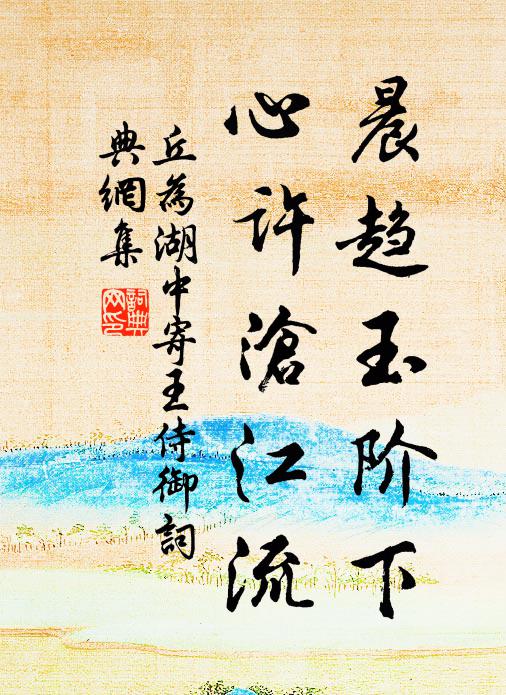 晨趋玉阶下
心许滄江流
丘為湖中寄王侍御詞
典網集
詞典
网印